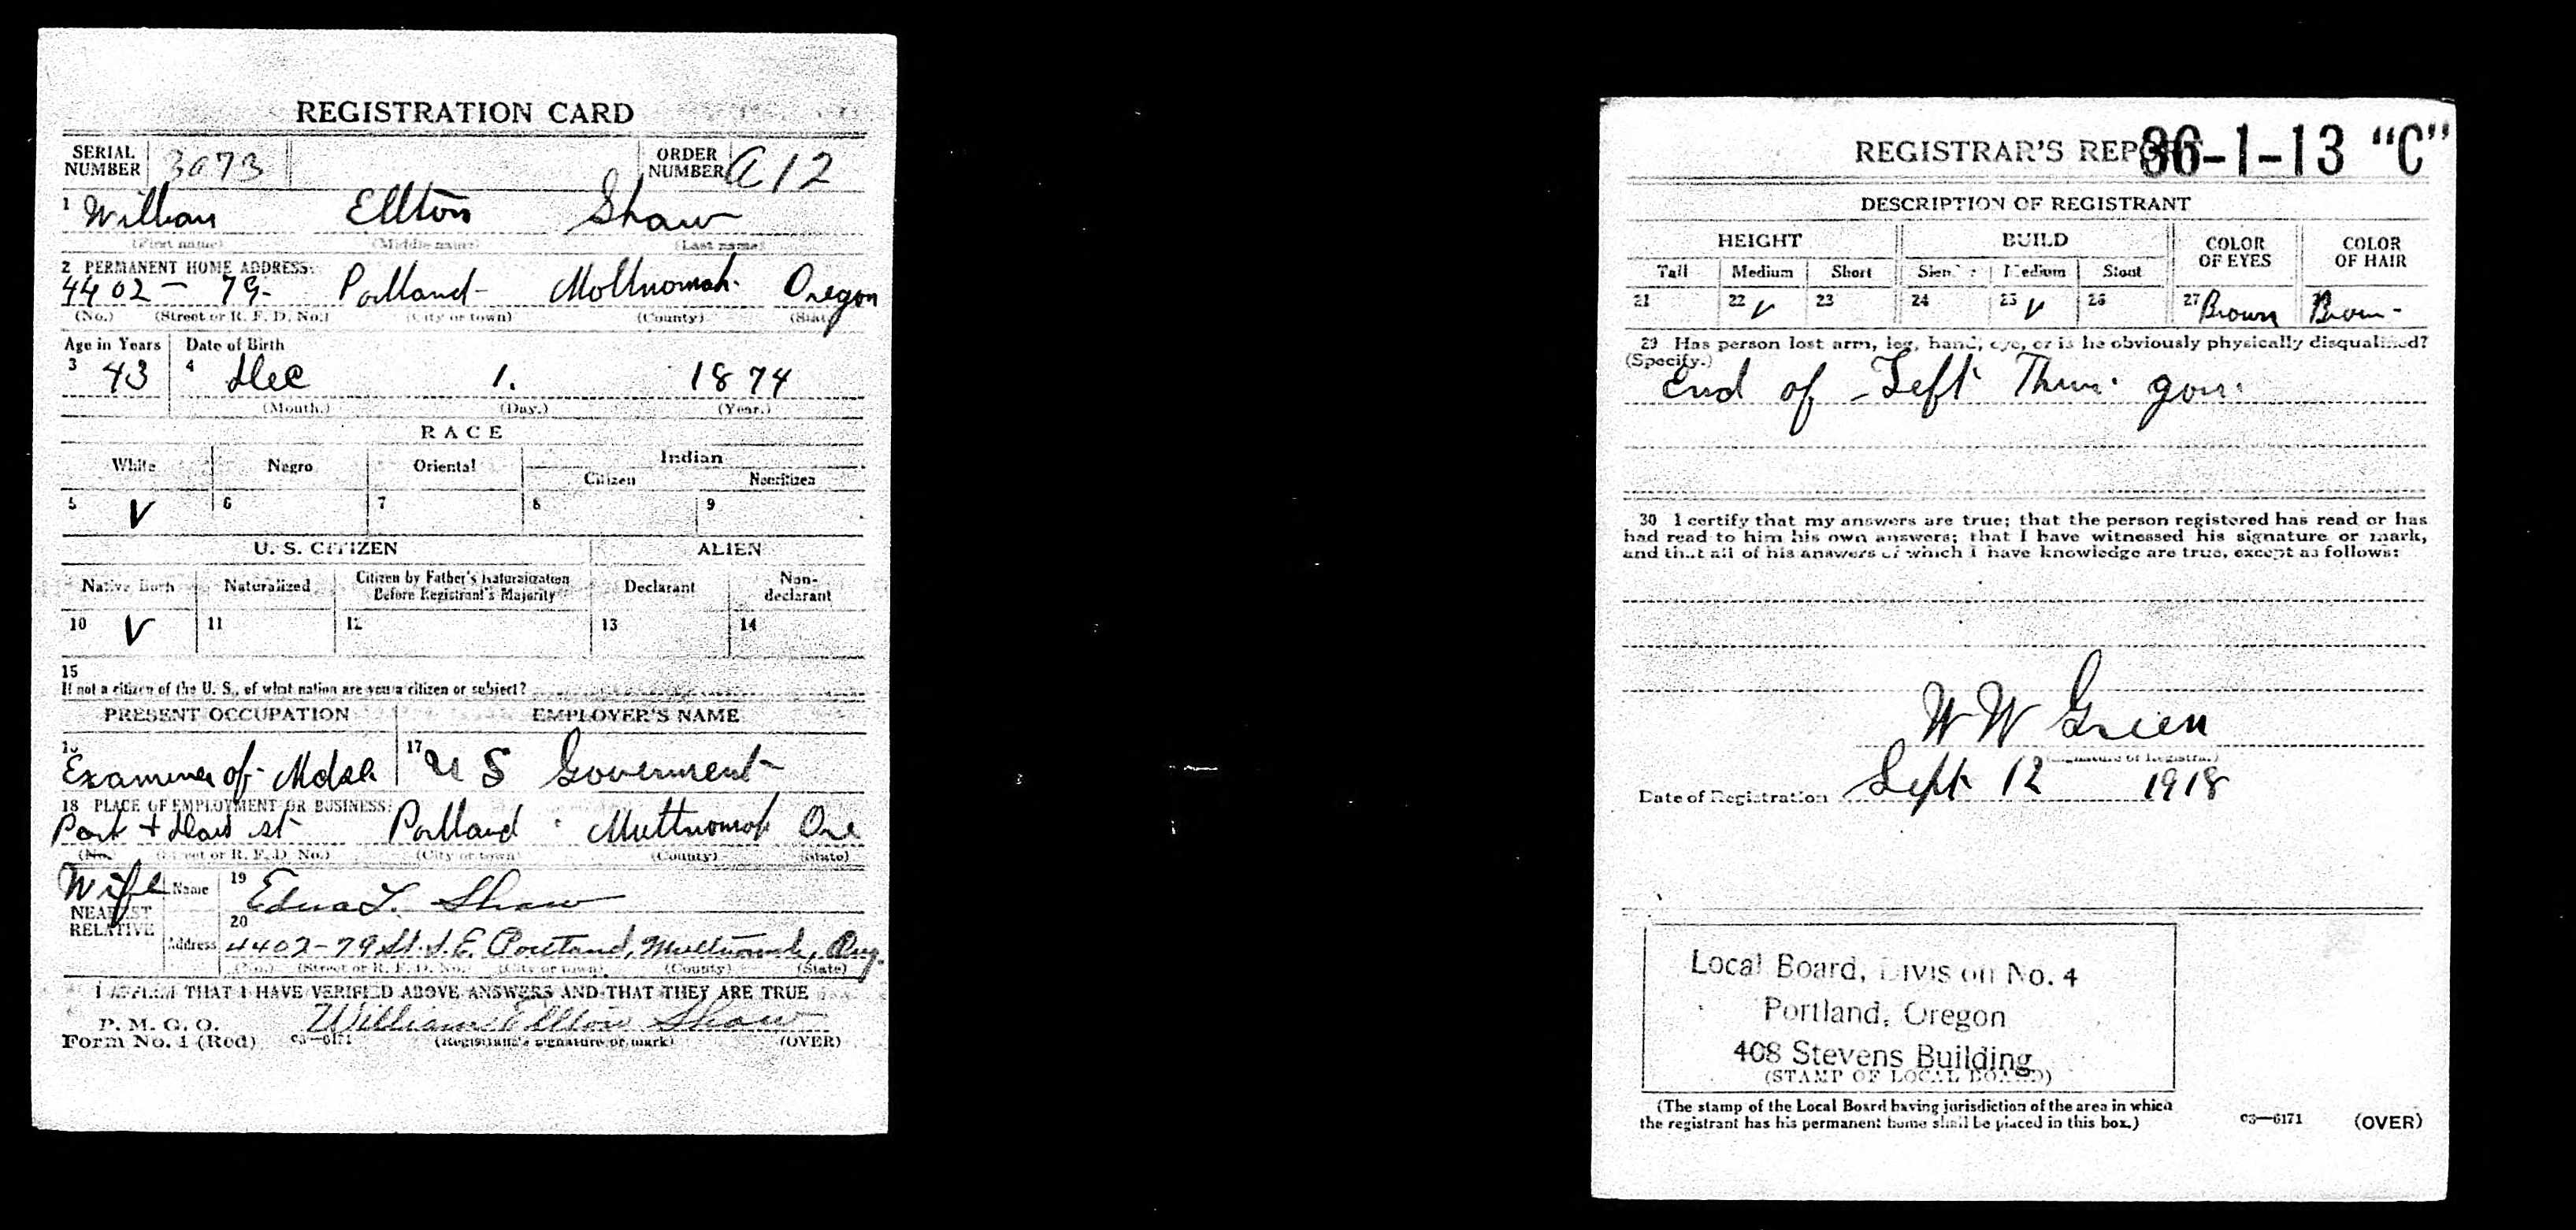 REGISTRATION CARD
SERIAL NUMBER 3073 ORDER NUMBER A 12
1 William Ellton Shaw
(First name) (Middle name) (Last name)
2 PERMANENT HOME ADDRESS:
4402 - 79 - Portland - Moltnomah. Oregon
(No.) (Street or R. F. D. No.) (City or town) (County) (State)
Age in Years Date of Birth
3 43 4 Dec 1. 1874
(Month.) (Day.) (Year.)
RACE
White Negro Oriental Indian
Citizen Noncitizen
5 V 6 7 8 9
U. S. CITIZEN ALIEN
Native Born Naturalized Citizen by Father's Naturalization Before Registrant's Majority Declarant Non-declarant
10 V 11 12 13 14
15
If not a citizen of the U. S., of what nation are you a citizen or subject?
PRESENT OCCUPATION EMPLOYER'S NAME
16 Examiner of 17 U S Goverment
18 PLACE OF EMPLOYMENT OR BUSINESS:
Park + st Portland Multnomah Ore
(No.) (Street or R. F. D. No.) (City or town) (County) (State)
Wife Name 19 Edna L. Shaw
NEAREST RELATIVE
20
Address 4402-79 St. S.E. Portland, Multnomah, Oreg.
(No.) (Street or R. F. D. No.) (City or town) (County) (State)
I AFFIRM THAT I HAVE VERIFIED ABOVE ANSWERS AND THAT THEY ARE TRUE
P. M. G. O.
Form No. 1 (Red) 03—6171 William Ellton Shaw
(Registrant's signature or mark) (OVER)
REGISTRAR'S REPORT 36-1-13 "C"
DESCRIPTION OF REGISTRANT
HEIGHT BUILD COLOR OF EYES COLOR OF HAIR
Tall Medium Short Slender Medium Stout
21 22 V 23 24 25 V 26 27 Brown Brown
29 Has person lost arm, leg, hand, eye, or is he obviously physically disqualified?
(Specify.)
End of Left gon
30 I certify that my answers are true; that the person registered has read or has
had read to him his own answers; that I have witnessed his signature or mark,
and that all of his answers of which I have knowledge are true, except as follows:
W W Green
(Signature of Registrar)
Date of Registration Sept 12 1918
Local Board, Division No. 4
Portland, Oregon
408 Stevens Building
(STAMP OF LOCAL BOARD)
(The stamp of the Local Board having jurisdiction of the area in which
the registrant has his permanent home shall be placed in this box.)
03—6171 (OVER)